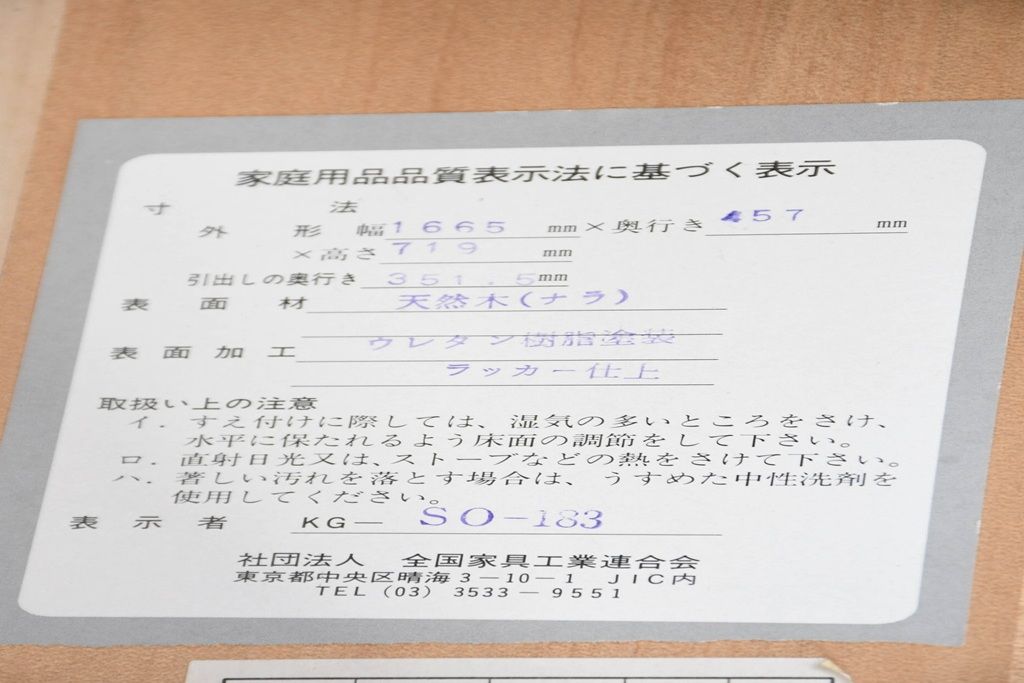 家庭用品品質表示法に基づく表示
寸法
外形 幅1665mm×奥行き457mm
×高さ719mm
引出しの奥行き351.5mm
表面材 天然木(ナラ)
表面加工 ウレタン樹脂塗装
ラッカー仕上
取扱い上の注意
イ. すえ付けに際しては、湿気の多いところをさけ、
水平に保たれるよう床面の調節をして下さい。
ロ. 直射日光又は、ストーブなどの熱をさけて下さい。
ハ. 著しい汚れを落とす場合は、うすめた中性洗剤を
使用してください。
表示者 KG— SO-183
社団法人 全国家具工業連合会
東京都中央区晴海3−10−1 JIC内
TEL (03) 3533−9551